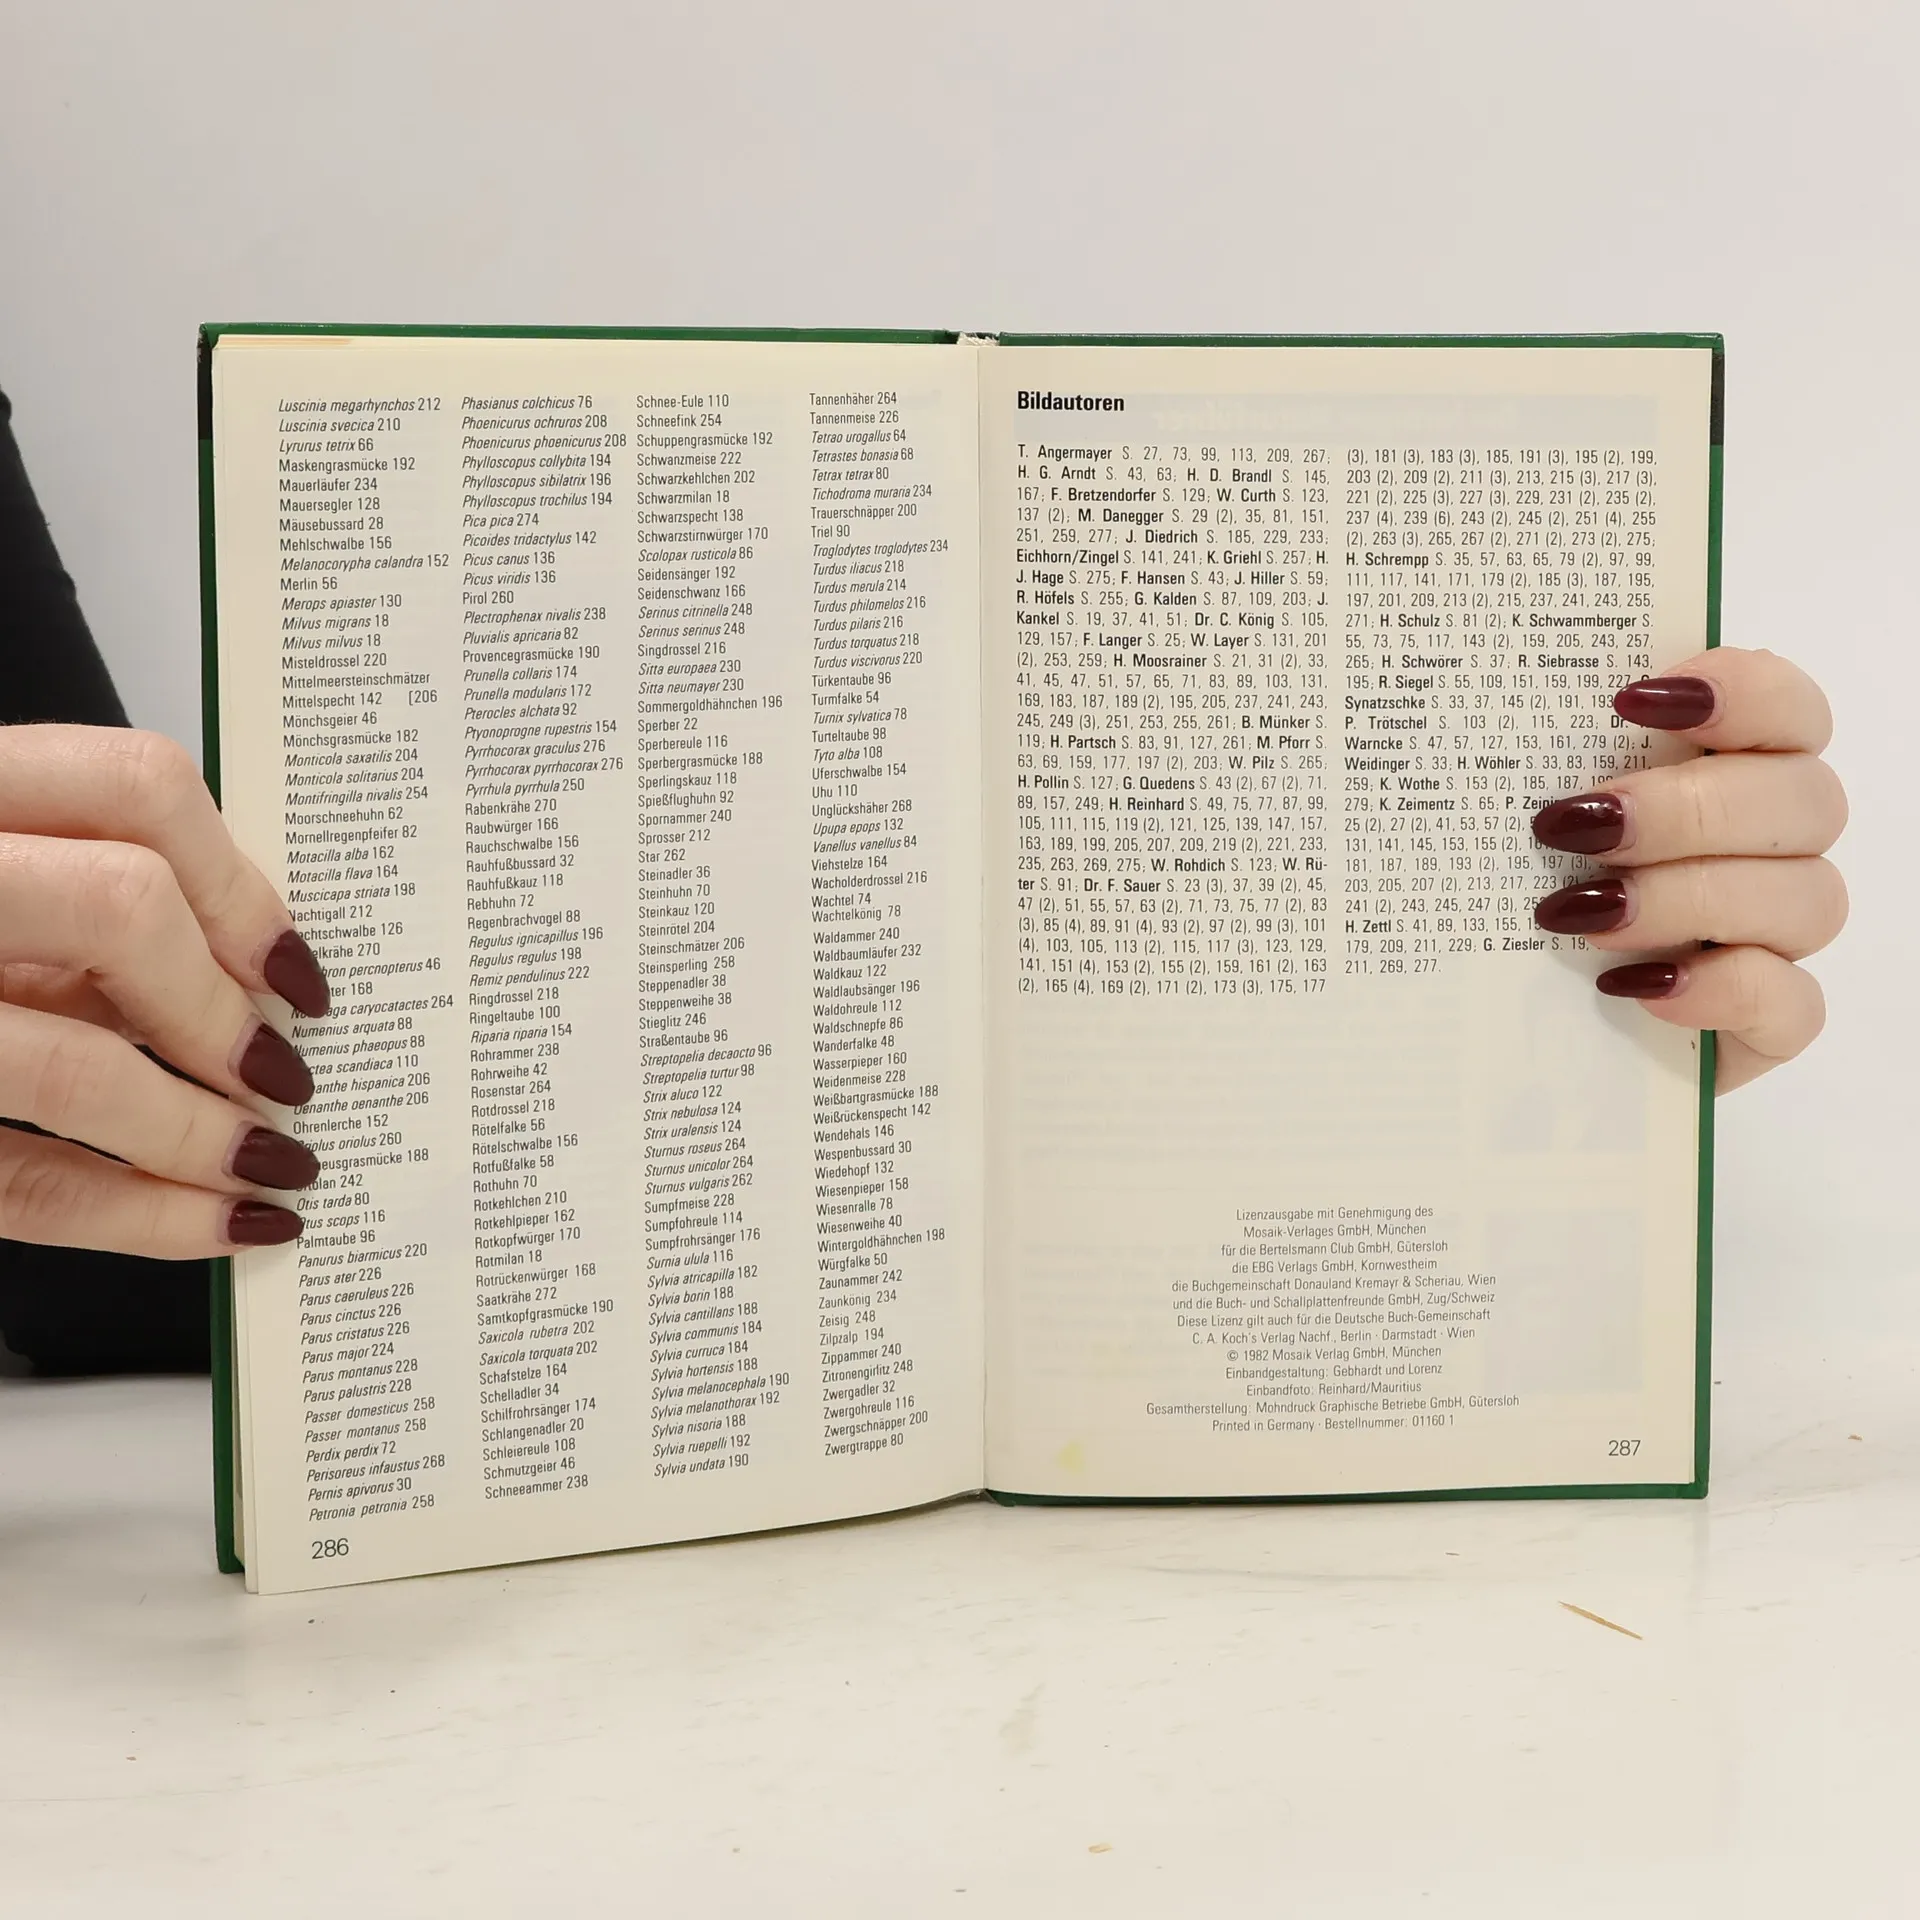 Luscinia megarhynchos 212
Luscinia svecica 210
Lyrurus tetrix 66
Maskengrasmücke 192
Mauerläufer 234
Mauersegler 128
Mäusebussard 28
Mehlschwalbe 156
Melanocorypha calandra 152
Merlin 56
Merops apiaster 130
Milvus migrans 18
Milvus milvus 18
Misteldrossel 220
Mittelmeersteinschmätzer
Mittelspecht 142 [206
Mönchsgeier 46
Mönchsgrasmücke 182
Monticola saxatilis 204
Monticola solitarius 204
Montifringilla nivalis 254
Moorschneehuhn 62
Mornellregenpfeifer 82
Motacilla alba 162
Motacilla flava 164
Muscicapa striata 198
Nachtigall 212
126
270
percnopterus 46
168
caryocatactes 264
Numenius arquata 88
Numenius phaeopus 88
scandiaca 110
hispanica 206
Oenanthe oenanthe 206
Ohrenlerche 152
oriolus 260
188
242
Otis tarda 80
Otus scops 116
Palmtaube 96
Panurus biarmicus 220
Parus ater 226
Parus caeruleus 226
Parus cinctus 226
Parus cristatus 226
Parus major 224
Parus montanus 228
Parus palustris 228
Passer domesticus 258
Passer montanus 258
Perdix perdix 72
Perisoreus infaustus 268
Pernis apivorus 30
Petronia petronia 258
Phasianus colchicus 76
Phoenicurus ochruros 208
Phoenicurus phoenicurus 208
Phylloscopus collybita 194
Phylloscopus sibilatrix 196
Phylloscopus trochilus 194
Pica pica 274
Picoides tridactylus 142
Picus canus 136
Picus viridis 136
Pirol 260
Plectrophenax nivalis 238
Pluvialis apricaria 82
Provencegrasmücke 190
Prunella collaris 174
Prunella modularis 172
Pterocles alchata 92
Ptyonoprogne rupestris 154
Pyrrhocorax graculus 276
Pyrrhocorax pyrrhocorax 276
Pyrrhula pyrrhula 250
Rabenkrähe 270
Raubwürger 166
Rauchschwalbe 156
Rauhfußbussard 32
Rauhfußkauz 118
Rebhuhn 72
Regenbrachvogel 88
Regulus ignicapillus 196
Regulus regulus 198
Remiz pendulinus 222
Ringdrossel 218
Ringeltaube 100
Riparia riparia 154
Rohrammer 238
Rohrweihe 42
Rosenstar 264
Rotdrossel 218
Rötelfalke 56
Rötelschwalbe 156
Rotfußfalke 58
Rothuhn 70
Rotkehlchen 210
Rotkehlpieper 162
Rotkopfwürger 170
Rotmilan 18
Rotrückenwürger 168
Saatkrähe 272
Samtkopfgrasmücke 190
Saxicola rubetra 202
Saxicola torquata 202
Schafstelze 164
Schelladler 34
Schilfrohrsänger 174
Schlangenadler 20
Schleiereule 108
Schmutzgeier 46
Schneeammer 238
Schnee-Eule 110
Schneefink 254
Schuppengrasmücke 192
Schwanzmeise 222
Schwarzkehlchen 202
Schwarzmilan 18
Schwarzspecht 138
Schwarzstirnwürger 170
Scolopax rusticola 86
Seidensänger 192
Seidenschwanz 166
Serinus citrinella 248
Serinus serinus 248
Singdrossel 216
Sitta europaea 230
Sitta neumayer 230
Sommergoldhähnchen 196
Sperber 22
Sperbereule 116
Sperbergrasmücke 188
Sperlingskauz 118
Spießflughuhn 92
Spornammer 240
Sprosser 212
Star 262
Steinadler 36
Steinhuhn 70
Steinkauz 120
Steinrötel 204
Steinschmätzer 206
Steinsperling 258
Steppenadler 38
Steppenweihe 38
Stieglitz 246
Straßentaube 96
Streptopelia decaocto 96
Streptopelia turtur 98
Strix aluco 122
Strix nebulosa 124
Strix uralensis 124
Sturnus roseus 264
Sturnus unicolor 264
Sturnus vulgaris 262
Sumpfmeise 228
Sumpfohreule 114
Sumpfrohrsänger 176
Surnia ulula 116
Sylvia atricapilla 182
Sylvia borin 188
Sylvia cantillans 188
Sylvia communis 184
Sylvia curruca 184
Sylvia hortensis 188
Sylvia melanocephala 190
Sylvia melanothorax 192
Sylvia nisoria 188
Sylvia ruepelli 192
Sylvia undata 190
Tannenhäher 264
Tannenmeise 226
Tetrao urogallus 64
Tetrastes bonasia 68
Tetrax tetrax 80
Tichodroma muraria 234
Trauerschnäpper 200
Triel 90
Troglodytes troglodytes 234
Turdus iliacus 218
Turdus merula 214
Turdus philomelos 216
Turdus pilaris 216
Turdus torquatus 218
Turdus viscivorus 220
Türkentaube 96
Turmfalke 54
Turnix sylvatica 78
Turteltaube 98
Tyto alba 108
Uferschwalbe 154
Uhu 110
Unglückshäher 268
Upupa epops 132
Vanellus vanellus 84
Viehstelze 164
Wacholderdrossel 216
Wachtel 74
Wachtelkönig 78
Waldammer 240
Waldbaumläufer 232
Waldkauz 122
Waldlaubsänger 196
Waldohreule 112
Waldschnepfe 86
Wanderfalke 48
Wasserpieper 160
Weidenmeise 228
Weißbartgrasmücke 188
Weißrückenspecht 142
Wendehals 146
Wespenbussard 30
Wiedehopf 132
Wiesenpieper 158
Wiesenralle 78
Wiesenweihe 40
Wintergoldhähnchen 198
Würgfalke 50
Zaunammer 242
Zaunkönig 234
Zeisig 248
Zilpzalp 194
Zippammer 240
Zitronengirlitz 248
Zwergadler 32
Zwergohreule 116
Zwergschnäpper 200
Zwergtrappe 80
286
Bildautoren
T. Angermayer S. 27, 73, 99, 113, 209, 267;
H. G. Arndt S. 43, 63; H. D. Brandl S. 145,
167; F. Bretzendorfer S. 129; W. Curth S. 123,
137 (2); M. Danegger S. 29 (2), 35, 81, 151,
251, 259, 277; J. Diedrich S. 185, 229, 233;
Eichhorn/Zingel S. 141, 241; K. Griehl S. 257; H.
J. Hage S. 275; F. Hansen S. 43; J. Hiller S. 59;
R. Höfels S. 255; G. Kalden S. 87, 109, 203; J.
Kankel S. 19, 37, 41, 51; Dr. C. König S. 105,
129, 157; F. Langer S. 25; W. Layer S. 131, 201
(2), 253, 259; H. Moosrainer S. 21, 31 (2), 33,
41, 45, 47, 51, 57, 65, 71, 83, 89, 103, 131,
169, 183, 187, 189 (2), 195, 205, 237, 241, 243,
245, 249 (3), 251, 253, 255, 261; B. Münker S.
119; H. Partsch S. 83, 91, 127, 261; M. Pforr S.
63, 69, 159, 177, 197 (2), 203; W. Pilz S. 265;
H. Pollin S. 127; G. Quedens S. 43 (2), 67 (2), 71,
89, 157, 249; H. Reinhard S. 49, 75, 77, 87, 99,
105, 111, 115, 119 (2), 121, 125, 139, 147, 157,
163, 189, 199, 205, 207, 209, 219 (2), 221, 233,
235, 263, 269, 275; W. Rohdich S. 123; W. Rü-
ter S. 91; Dr. F. Sauer S. 23 (3), 37, 39 (2), 45,
47 (2), 51, 55, 57, 63 (2), 71, 73, 75, 77 (2), 83
(3), 85 (4), 89, 91 (4), 93 (2), 97 (2), 99 (3), 101
(4), 103, 105, 113 (2), 115, 117 (3), 123, 129,
141, 151 (4), 153 (2), 155 (2), 159, 161 (2), 163
(2), 165 (4), 169 (2), 171 (2), 173 (3), 175, 177
(3), 181 (3), 183 (3), 185, 191 (3), 195 (2), 199,
203 (2), 209 (2), 211 (3), 213, 215 (3), 217 (3),
221 (2), 225 (3), 227 (3), 229, 231 (2), 235 (2),
237 (4), 239 (6), 243 (2), 245 (2), 251 (4), 255
(2), 263 (3), 265, 267 (2), 271 (2), 273 (2), 275;
H. Schrempp S. 35, 57, 63, 65, 79 (2), 97, 99,
111, 117, 141, 171, 179 (2), 185 (3), 187, 195,
197, 201, 209, 213 (2), 215, 237, 241, 243, 255,
271; H. Schulz S. 81 (2); K. Schwammberger S.
55, 73, 75, 117, 143 (2), 159, 205, 243, 257,
265; H. Schwörer S. 37; R. Siebrasse S. 143,
195; R. Siegel S. 55, 109, 151, 159, 199, 227
Synatzschke S. 33, 37, 145 (2), 191, 193
P. Trötschel S. 103 (2), 115, 223; Dr.
Warncke S. 47, 57, 127, 153, 161, 279 (2); J.
Weidinger S. 33; H. Wöhler S. 33, 83, 159, 211,
259; K. Wothe S. 153 (2), 185, 187,
279; K. Zeimentz S. 65; P.
25 (2), 27 (2), 41, 53, 57 (2),
131, 141, 145, 153, 155 (2),
181, 187, 189, 193 (2), 195, 197 (3),
203, 205, 207 (2), 213, 217, 223 (2)
241 (2), 243, 245, 247 (3),
H. Zettl S. 41, 89, 133, 155,
179, 209, 211, 229; G. Ziesler S. 19,
211, 269, 277.
Lizenzausgabe mit Genehmigung des
Mosaik-Verlages GmbH, München
für die Bertelsmann Club GmbH, Gütersloh
die EBG Verlags GmbH, Kornwestheim
die Buchgemeinschaft Donauland Kremayr & Scheriau, Wien
und die Buch- und Schallplattenfreunde GmbH, Zug/Schweiz
Diese Lizenz gilt auch für die Deutsche Buch-Gemeinschaft
C. A. Koch's Verlag Nachf., Berlin · Darmstadt · Wien
© 1982 Mosaik Verlag GmbH, München
Einbandgestaltung: Gebhardt und Lorenz
Einbandfoto: Reinhard/Mauritius
Gesamtherstellung: Mohndruck Graphische Betriebe GmbH, Gütersloh
Printed in Germany · Bestellnummer: 01160 1
287